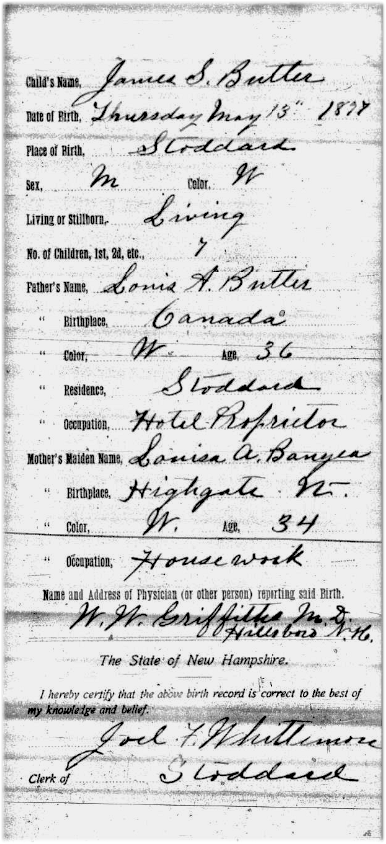 Child's Name, James S. Butter
Date of Birth, Thursday May 13" 1897
Place of Birth, Stoddard
Sex, M Color, W
Living or Stillborn, Living
No. of Children, 1st, 2d, etc., 7
Father's Name, Louis A. Butter
" Birthplace, Canada
" Color, W. Age, 36
" Residence, Stoddard
" Occupation, Hotel Proprietor
Mother's Maiden Name, Louisa A. Banyea
" Birthplace, Highgate Vt.
" Color, W. Age, 34
" Occupation, Housework
Name and Address of Physician (or other person) reporting said Birth.
W. W. Griffiths M.D.
Hillsboro N.H.
The State of New Hampshire.
I hereby certify that the above birth record is correct to the best of
my knowledge and belief.
Joel F. Whittemore
Clerk of Stoddard